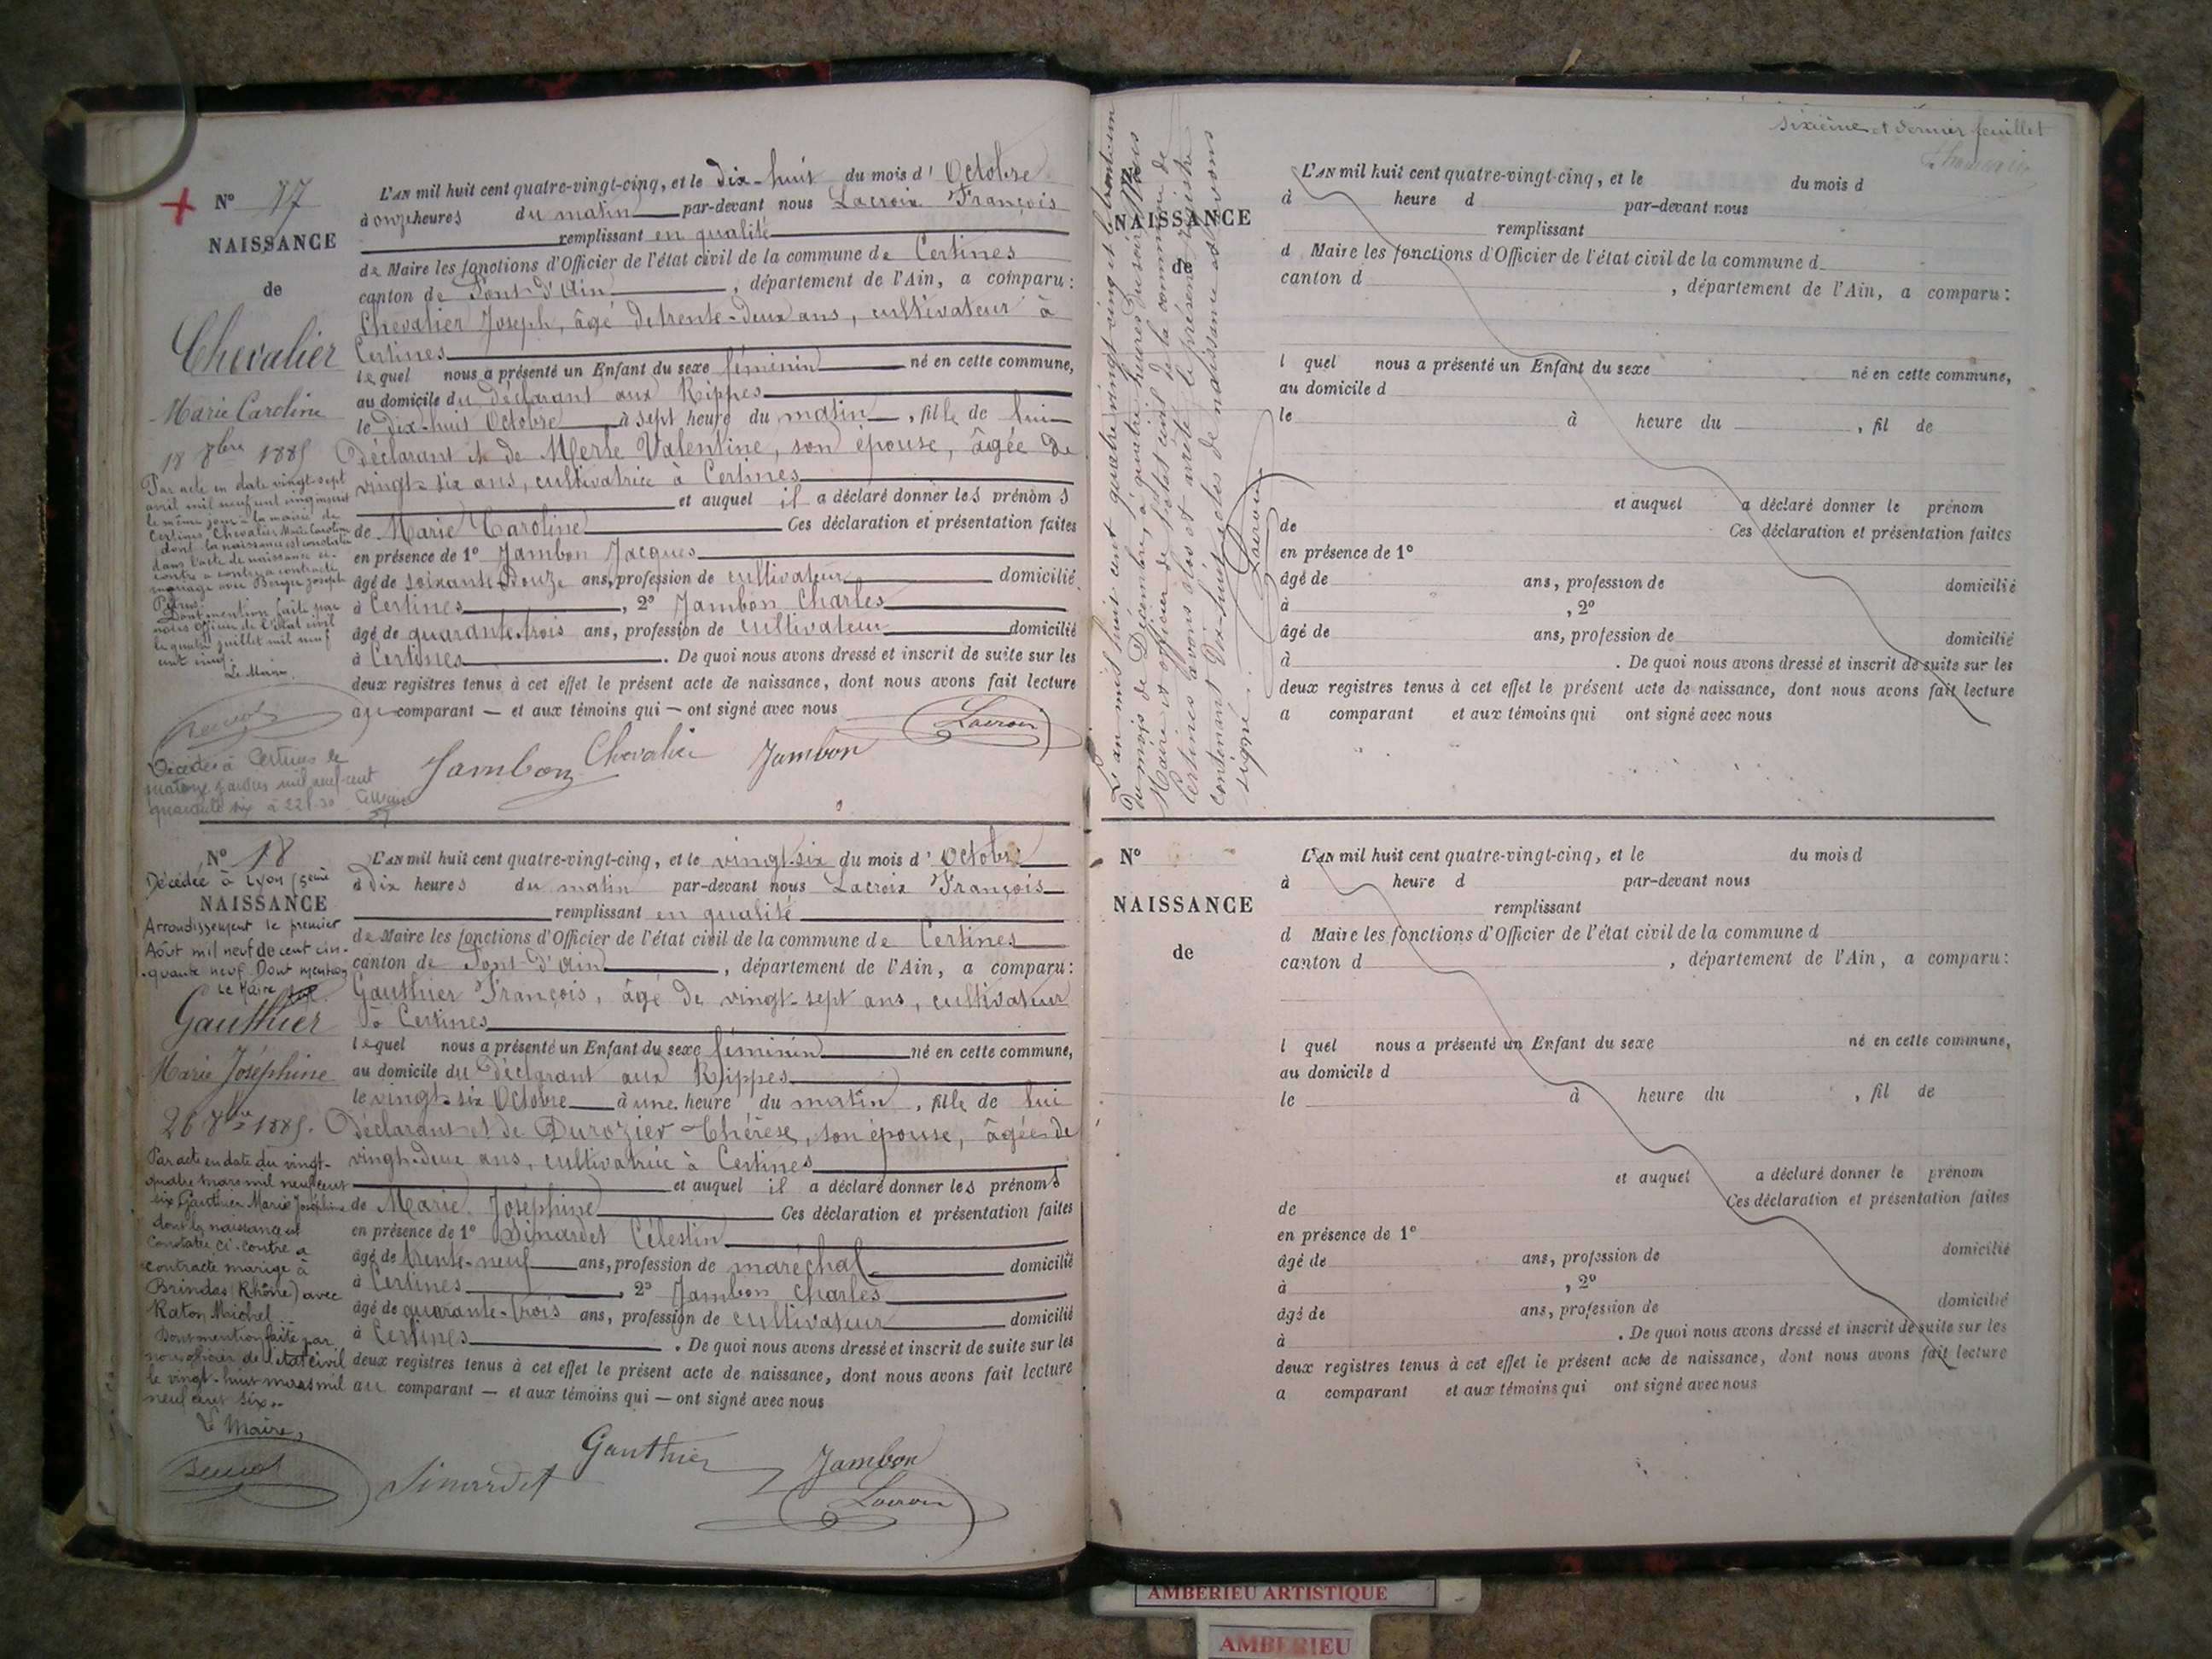 N° 17
NAISSANCE
de
Chevalier
Marie Caroline
18 8bre 1885
Par acte en date vingt-sept
avril mil neuf cent cinq inscrit
le même jour à la mairie de
Certines, Chevalier Marie Caroline
dont la naissance est constatée
dans l'acte de naissance ci-
contre a contracté
mariage avec Berger Joseph
Dont mention faite par
nous officier de l'état civil
le quatre juillet mil neuf
cent cinq.
Le Maire,
Décédée à Certines le
quatorze mil neuf cent
quarante six à 22h30
L'AN mil huit cent quatre-vingt-cinq, et le dix-huit du mois d'Octobre
à onze heures du matin par-devant nous Lacroix François
remplissant en qualité
de Maire les fonctions d'Officier de l'état civil de la commune de Certines
canton de Pont-d'Ain, département de l'Ain, a comparu:
Chevalier Joseph, âgé de trente-deux ans, cultivateur à
Certines
lequel nous a présenté un Enfant du sexe féminin né en cette commune,
au domicile du Déclarant aux Rippes
le dix-huit Octobre à sept heure du matin, fille de lui
Déclarant et de Merle Valentine, son épouse, âgée de
vingt-six ans, cultivatrice à Certines
et auquel il a déclaré donner les prénoms
de Marie Caroline Ces déclaration et présentation faites
en présence de 1° Jambon Jacques
âgé de soixante-douze ans, profession de cultivateur domicilié
à Certines, 2° Jambon Charles
âgé de quarante-trois ans, profession de cultivateur domicilié
à Certines. De quoi nous avons dressé et inscrit de suite sur les
deux registres tenus à cet effet le présent acte de naissance, dont nous avons fait lecture
au comparant — et aux témoins qui — ont signé avec nous
Lacroix
Jambon Chevalier Jambon
N° 18
Décédée à Lyon 5eme
NAISSANCE
Arrondissement le premier
Août mil neuf de cent cin-
quante neuf Dont mention
Le Maire
Gauthier
Marie Joséphine
26 8bre 1885.
Par acte en date du vingt-
quatre mars mil neuf cent
six Gauthier Marie Joséphine
dont la naissance est
constatée ci-contre a
contracté mariage à
Brindas (Rhône) avec
Raton Michel
Dont mention faite par
nous officier de l'état civil
le vingt-huit mars mil
neuf cent six..
Le Maire,
L'AN mil huit cent quatre-vingt-cinq, et le vingt-six du mois d'Octobre
à Dix heures du matin par-devant nous Lacroix François
remplissant en qualité
de Maire les fonctions d'Officier de l'état civil de la commune de Certines
canton de Pont-d'Ain, département de l'Ain, a comparu:
Gauthier François, âgé de vingt-sept ans, cultivateur
à Certines
lequel nous a présenté un Enfant du sexe féminin né en cette commune,
au domicile du Déclarant aux Rippes
le vingt-six Octobre à une heure du matin, fille de lui
Déclarant et de Durozier Thérèse, son épouse, âgée de
vingt-deux ans, cultivatrice à Certines
et auquel il a déclaré donner les prénoms
de Marie Joséphine Ces déclaration et présentation faites
en présence de 1° Sinardet Célestin
âgé de trente-neuf ans, profession de maréchal domicilié
à Certines, 2° Jambon Charles
âgé de quarante-trois ans, profession de cultivateur domicilié
à Certines. De quoi nous avons dressé et inscrit de suite sur les
deux registres tenus à cet effet le présent acte de naissance, dont nous avons fait lecture
au comparant — et aux témoins qui — ont signé avec nous
Gauthier Jambon
Sinardet Lacroix
sixième et dernier feuillet
L'an mil huit cent quatre vingt cinq et le trente un
du mois de Décembre, à quatre heures du soir, Nous
Maire et officier de l'état civil de la commune de
Certines avons clos et arrêté le présent registre
contenant Dix-huit actes de naissance et avons
signé.
Lacroix
NAISSANCE
de
L'AN mil huit cent quatre-vingt-cinq, et le du mois d
à heure d par-devant nous
remplissant
d Maire les fonctions d'Officier de l'état civil de la commune d
canton d , département de l'Ain, a comparu:
l quel nous a présenté un Enfant du sexe né en cette commune,
au domicile d
le à heure du , fil de
et auquel a déclaré donner le prénom
de Ces déclaration et présentation faites
en présence de 1°
âgé de ans, profession de domicilié
à , 2°
âgé de ans, profession de domicilié
à . De quoi nous avons dressé et inscrit de suite sur les
deux registres tenus à cet effet le présent acte de naissance, dont nous avons fait lecture
a comparant et aux témoins qui ont signé avec nous
N°
NAISSANCE
de
L'AN mil huit cent quatre-vingt-cinq, et le du mois d
à heure d par-devant nous
remplissant
d Maire les fonctions d'Officier de l'état civil de la commune d
canton d , département de l'Ain, a comparu:
l quel nous a présenté un Enfant du sexe né en cette commune,
au domicile d
le à heure du , fil de
et auquel a déclaré donner le prénom
de Ces déclaration et présentation faites
en présence de 1°
âgé de ans, profession de domicilié
à , 2°
âgé de ans, profession de domicilié
à . De quoi nous avons dressé et inscrit de suite sur les
deux registres tenus à cet effet le présent acte de naissance, dont nous avons fait lecture
a comparant et aux témoins qui ont signé avec nous
AMBERIEU ARTISTIQUE
AMBERIEU